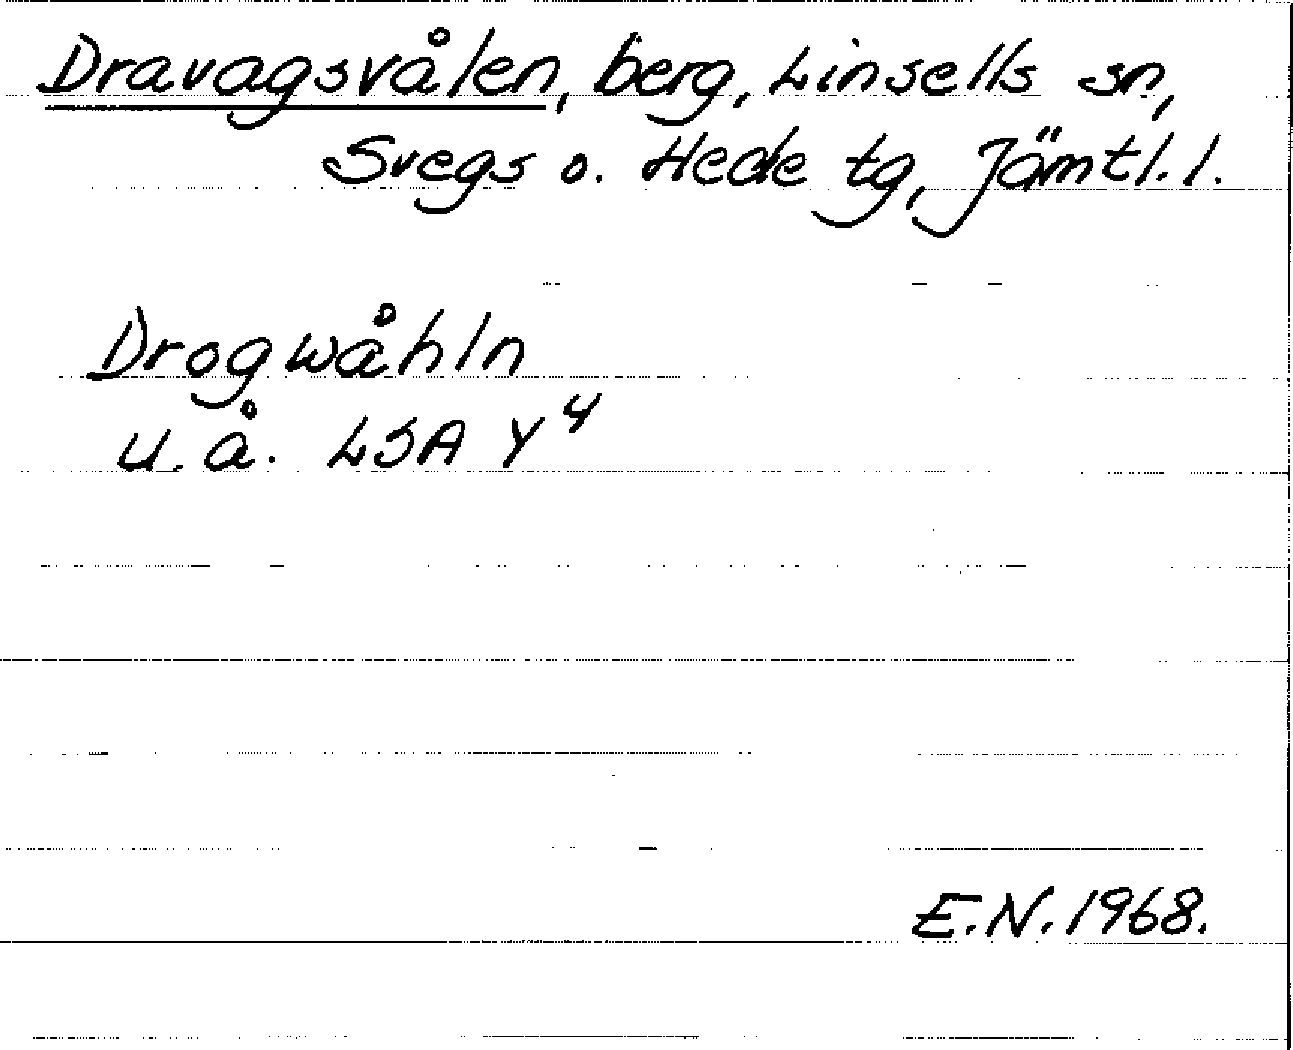 Dravagsvålen, berg, Linsells sn,
Svegs o. Hede tg, Jämtl. l.
Drogwåhln
u. å. LSA Y⁴
E.N. 1968.